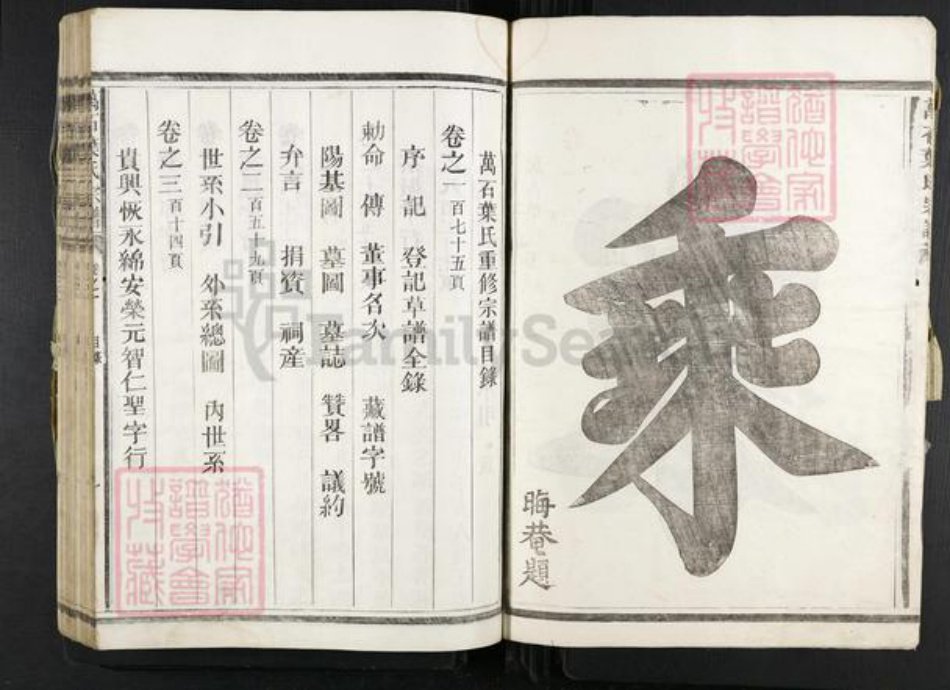 乘
晦菴題
萬石葉氏重修宗譜目錄
卷之一百七十五頁
序 記 登記草譜全錄
勅命 傳 董事名次 藏譜字號
陽基圖 墓圖 墓誌 贊畧 議約
弁言 捐資 祠產
卷之二百五十九頁
世系小引 外系總圖 內世系
卷之三百十四頁
貴興恢永綿安榮元智仁聖字行
FamilySearch